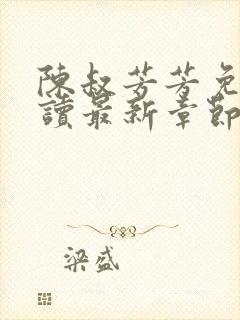 陳叔芳芳免
讀最新章節
梁盛